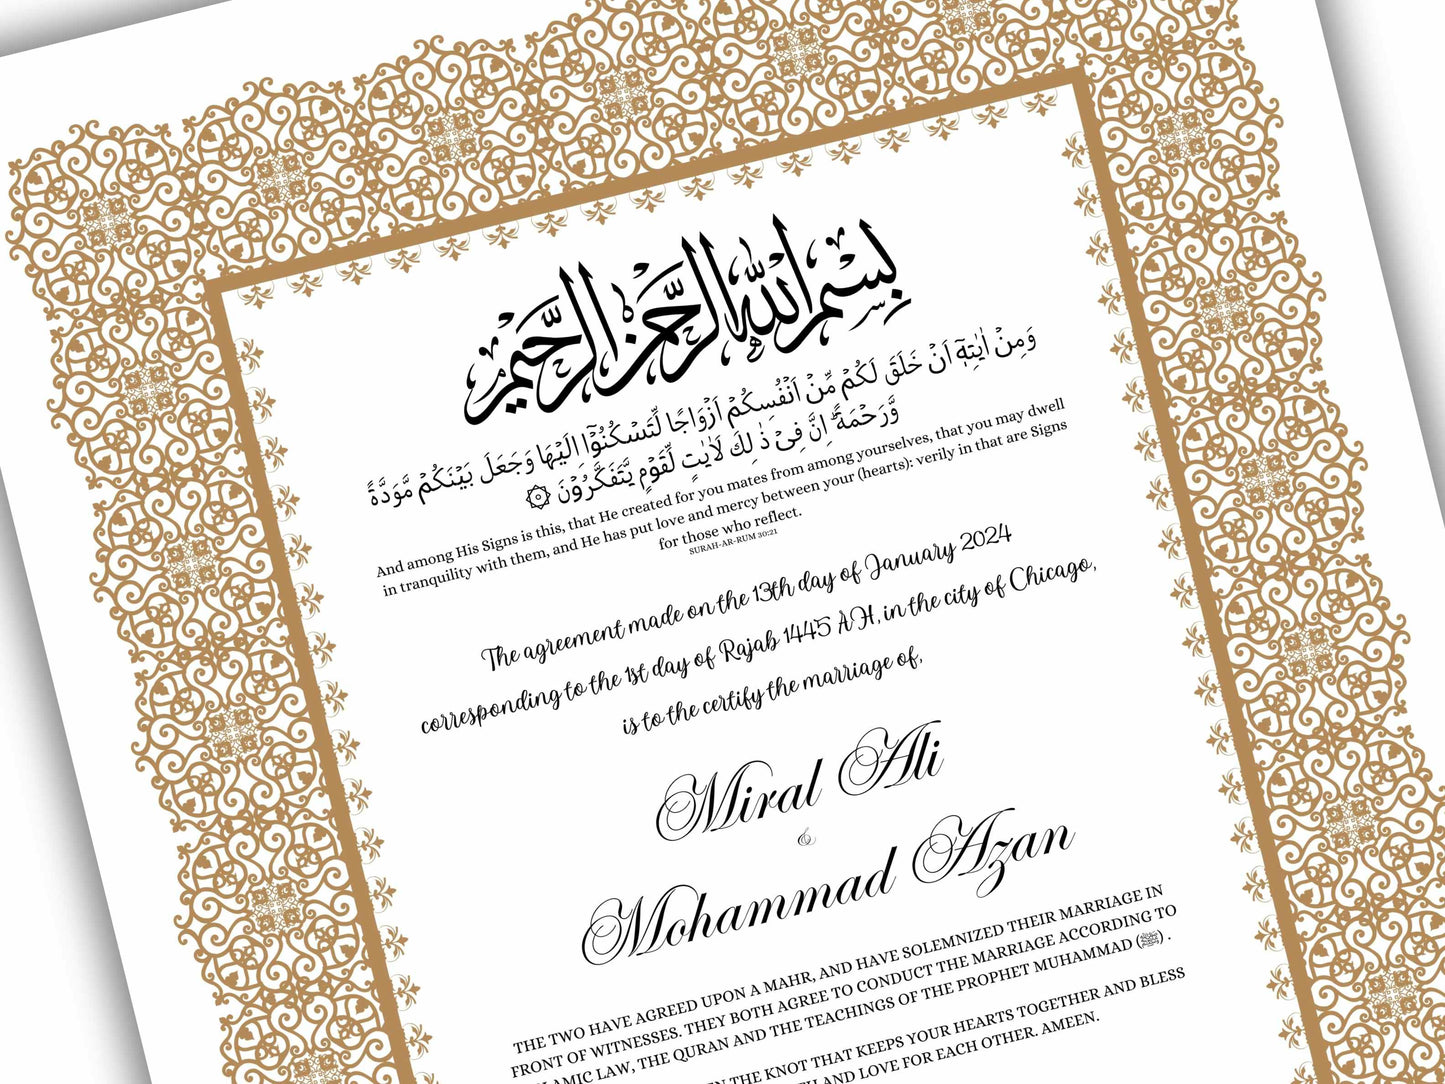 بِسْمِ اللهِ الرَّحْمٰنِ الرَّحِيْمِ
وَمِنْ اٰيٰتِهٖٓ اَنْ خَلَقَ لَكُمْ مِّنْ اَنْفُسِكُمْ اَزْوَاجًا لِّتَسْكُنُوْٓا اِلَيْهَا وَجَعَلَ بَيْنَكُمْ مَّوَدَّةً
وَّرَحْمَةً ۗ اِنَّ فِيْ ذٰ لِكَ لَاٰيٰتٍ لِّقَوْمٍ يَّتَفَكَّرُوْنَ ۞
And among His Signs is this, that He created for you mates from among yourselves, that you may dwell
in tranquility with them, and He has put love and mercy between your (hearts): verily in that are Signs
for those who reflect.
SURAH-AR-RUM 30:21
The agreement made on the 13th day of January 2024
corresponding to the 1st day of Rajab 1445 AH, in the city of Chicago,
is to the certify the marriage of,
Miral Ali
&
Mohammad Azan
THE TWO HAVE AGREED UPON A MAHR, AND HAVE SOLEMNIZED THEIR MARRIAGE IN
FRONT OF WITNESSES. THEY BOTH AGREE TO CONDUCT THE MARRIAGE ACCORDING TO
LAMIC LAW, THE QURAN AND THE TEACHINGS OF THE PROPHET MUHAMMAD (ﷺ) .
THE KNOT THAT KEEPS YOUR HEARTS TOGETHER AND BLESS
AND LOVE FOR EACH OTHER. AMEEN.